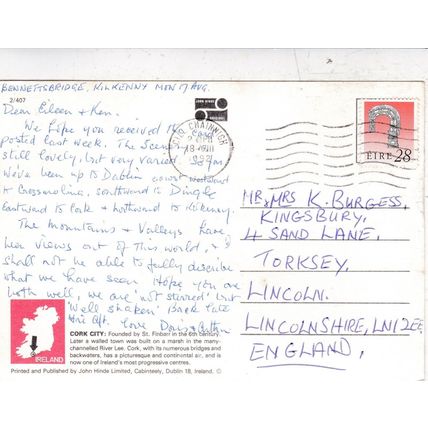 BENNETTSBRIDGE, KILKENNY MON 17 AUG.
2/407
JOHN HINDE
Dear Eileen & Ken.
We hope you received the
posted last week. The Scenery
still lovely, but very varied. So far
we've been up to Dublin coast westward
to Crossmolina, southward to Dingle
Eastward to Cork & northward to Kilkenny.
The Mountains & Valleys have
views out of this world, & I
shall not be able to fully describe
what we have seen. Hope you are
both well, we are 'not stirred' but
'Well shaken'. Back late
love
ÉIRE 28
MR, MRS K. BURGESS,
KINGSBURY,
4 SAND LANE,
TORKSEY,
LINCOLN.
LINCOLNSHIRE, LN1 2EE
ENGLAND,
IRELAND
CORK CITY: Founded by St. Finbarr in the 6th century.
Later a walled town was built on a marsh in the many-
channelled River Lee. Cork, with its numerous bridges and
backwaters, has a picturesque and continental air, and is
now one of Ireland's most progressive centres.
Printed and Published by John Hinde Limited, Cabinteely, Dublin 18, Ireland. ©